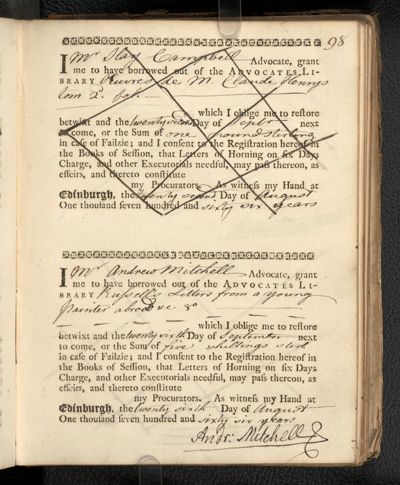 98
I Mr Ilay Campbell Advocate, grant
me to have borrowed out of the ADVOCATES LI-
BRARY Œuvres de M. Claude Henrys
tom 2. fol.
which I oblige me to reſtore
betwixt and the twenty second Day of Septr next
to come, or the Sum of one pound sterling
in caſe of Failzie; and I conſent to the Regiſtration hereof in
the Books of Seſſion, that Letters of Horning on ſix Days
Charge, and other Executorials needful, may paſs thereon, as
effeirs, and thereto conſtitute
my Procurators. As witneſs my Hand at
Edinburgh, the twenty second Day of August
One thouſand ſeven hundred and sixty six years
I Mr Andrew Mitchell Advocate, grant
me to have borrowed out of the ADVOCATES LI-
BRARY Russel's Letters from a young
painter abroad
which I oblige me to reſtore
betwixt and the twenty sixth Day of September next
to come, or the Sum of five shillings sterl
in caſe of Failzie; and I conſent to the Regiſtration hereof in
the Books of Seſſion, that Letters of Horning on ſix Days
Charge, and other Executorials needful, may paſs thereon, as
effeirs, and thereto conſtitute
my Procurators. As witneſs my Hand at
Edinburgh, the twenty sixth Day of August
One thouſand ſeven hundred and sixty six years
Andr: Mitchell